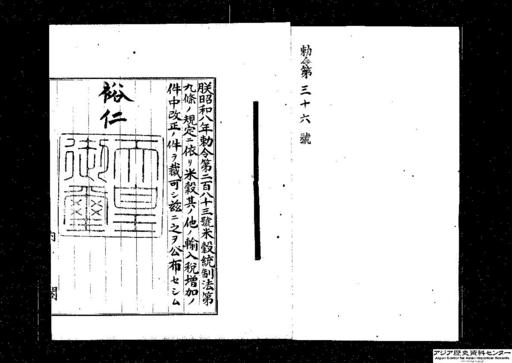 勅令第三十六號
朕昭和八年勅令第二百八十三號米穀統制法第
九條ノ規定ニ依リ米穀其ノ他ノ輸入税增加ノ
件中改正ノ件ヲ裁可シ茲ニ之ヲ公布セシム
裕仁
天皇
御璽
内閣
アジア歴史資料センター
Japan Center for Asian Historical Records